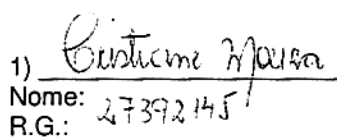 1) Cristiane Moura
Nome:
R.G.: 27392145